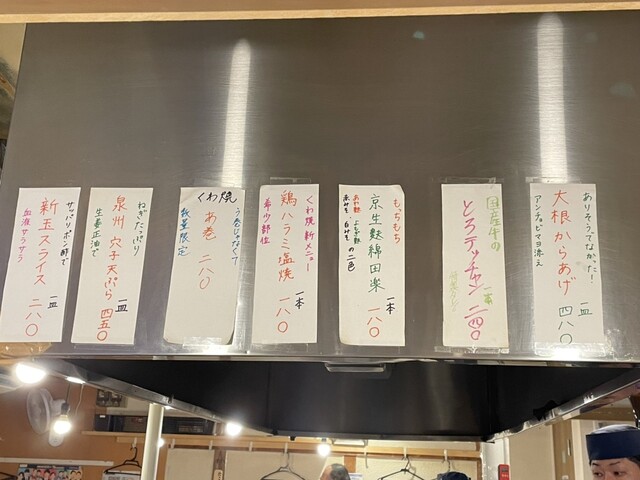 ありそうでなかった!
大根からあげ 一皿 四八〇
アンチョビマヨ添え
国産牛の
とろテッチャン 一本 二四〇
もっちもち
京生麩綿田楽 一本 一八〇
あわ麩 よもぎ麩
赤みそ 白みそ の二色
くわ焼新メニュー
鶏ハラミ塩焼 一本 一八〇
希少部位
くわ焼
う巻じゃなくて
あ巻 二八〇
数量限定
ねぎたっぷり
泉州 穴子天ぷら 一皿 四五〇
生姜正油で
サッパリポン酢で
新玉スライス 一皿 二八〇
血液サラサラ